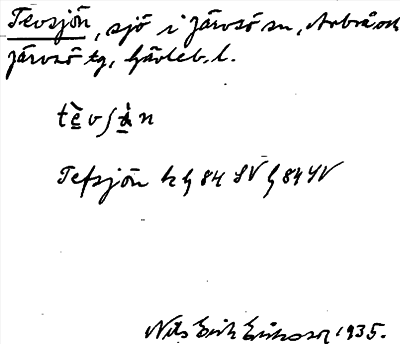 Tevsjön, sjö i Järvsö sn, Arbrå och
Järvsö tg, Gävleb. l.
tè̱vʃà̱n
Tefsjön k g 84 SV g 84 SV
Nils Erik Eriksson 1935.